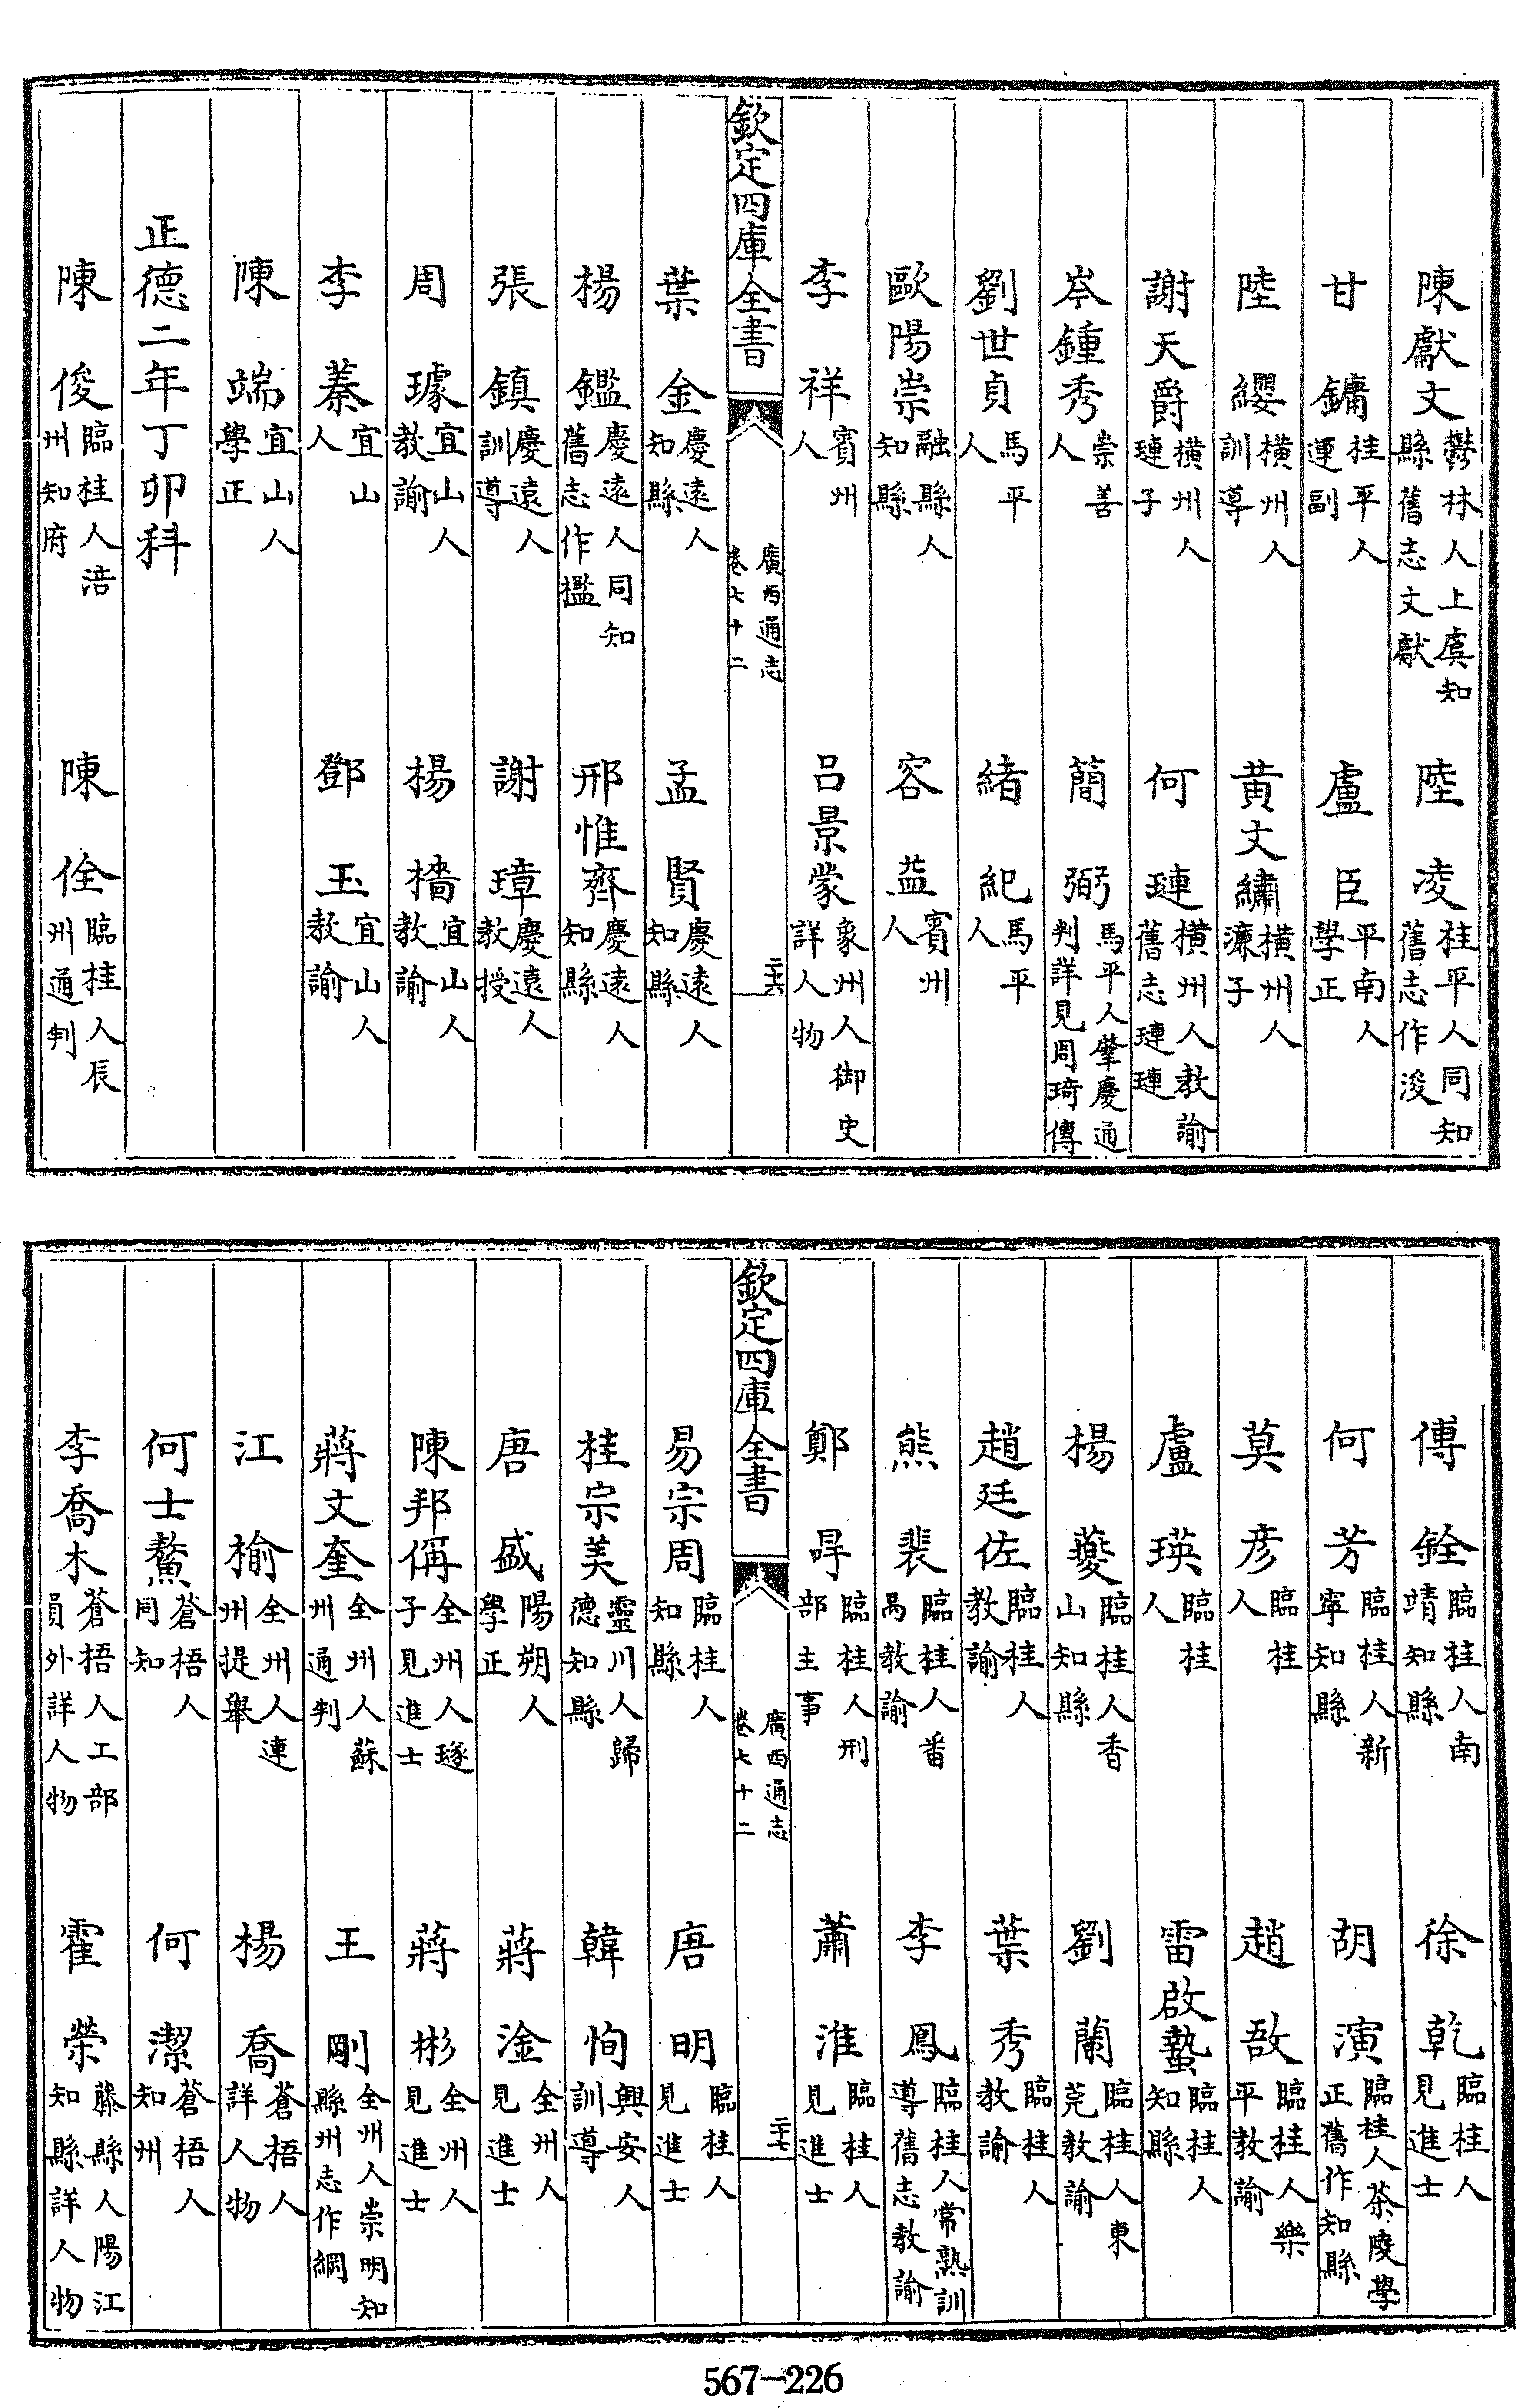 陳獻文鬱林人上虞知縣舊志文獻　陸凌桂平人同知舊志作浚
甘鏞桂平人運副　盧臣平南人學正
陸纓橫州人訓導　黄文繡橫州人濂子
謝天爵橫州人璉子　何璉橫州人教諭舊志璉璉
岑鍾秀崇善人　簡弼馬平人肇慶通判詳見周琦傳
劉世貞馬平人　緒紀馬平人
歐陽崇融縣人知縣　容益賓州人
李祥賓州人　呂景蒙象州人御史詳人物
欽定四庫全書　廣西通志卷七十二　二十六
葉金慶遠人知縣　孟賢慶遠人知縣
楊鑑慶遠人同知舊志作檻　邢惟齊慶遠人知縣
張鎮慶遠人訓導　謝璋慶遠人教授
周璩宜山人教諭　楊檣宜山人教諭
李蓁宜山人　鄧玉宜山人教諭
陳端宜山人學正
正德二年丁卯科
陳俊臨桂人涪州知府　陳佺臨桂人辰州通判
傅銓臨桂人南靖知縣　徐乾臨桂人見進士
何芳臨桂人新寧知縣　胡演臨桂人茶陵學正舊作知縣
莫彦臨桂人　趙敔臨桂人樂平教諭
盧瑛臨桂人　雷啟蟄臨桂人知縣
楊夔臨桂人香山知縣　劉蘭臨桂人東莞教諭
趙廷佐臨桂人教諭　葉秀臨桂人教諭
熊裴臨桂人番禺教諭　李鳳臨桂人常熟訓導舊志教諭
鄭㝵臨桂人刑部主事　蕭淮臨桂人見進士
欽定四庫全書　廣西通志卷七十二　二十七
易宗周臨桂人知縣　唐明臨桂人見進士
桂宗美靈川人歸德知縣　韓恂興安人訓導
唐盛陽朔人學正　蔣淦全州人見進士
陳邦偁全州人璲子見進士　蔣彬全州人見進士
蔣文奎全州人蘇州通判　王剛全州人崇明知縣州志作綱
江榆全州人連州提舉　楊喬蒼梧人詳人物
何士鰲蒼梧人同知　何潔蒼梧人知州
李喬木蒼梧人工部員外詳人物　霍榮藤縣人陽江知縣詳人物
567-226